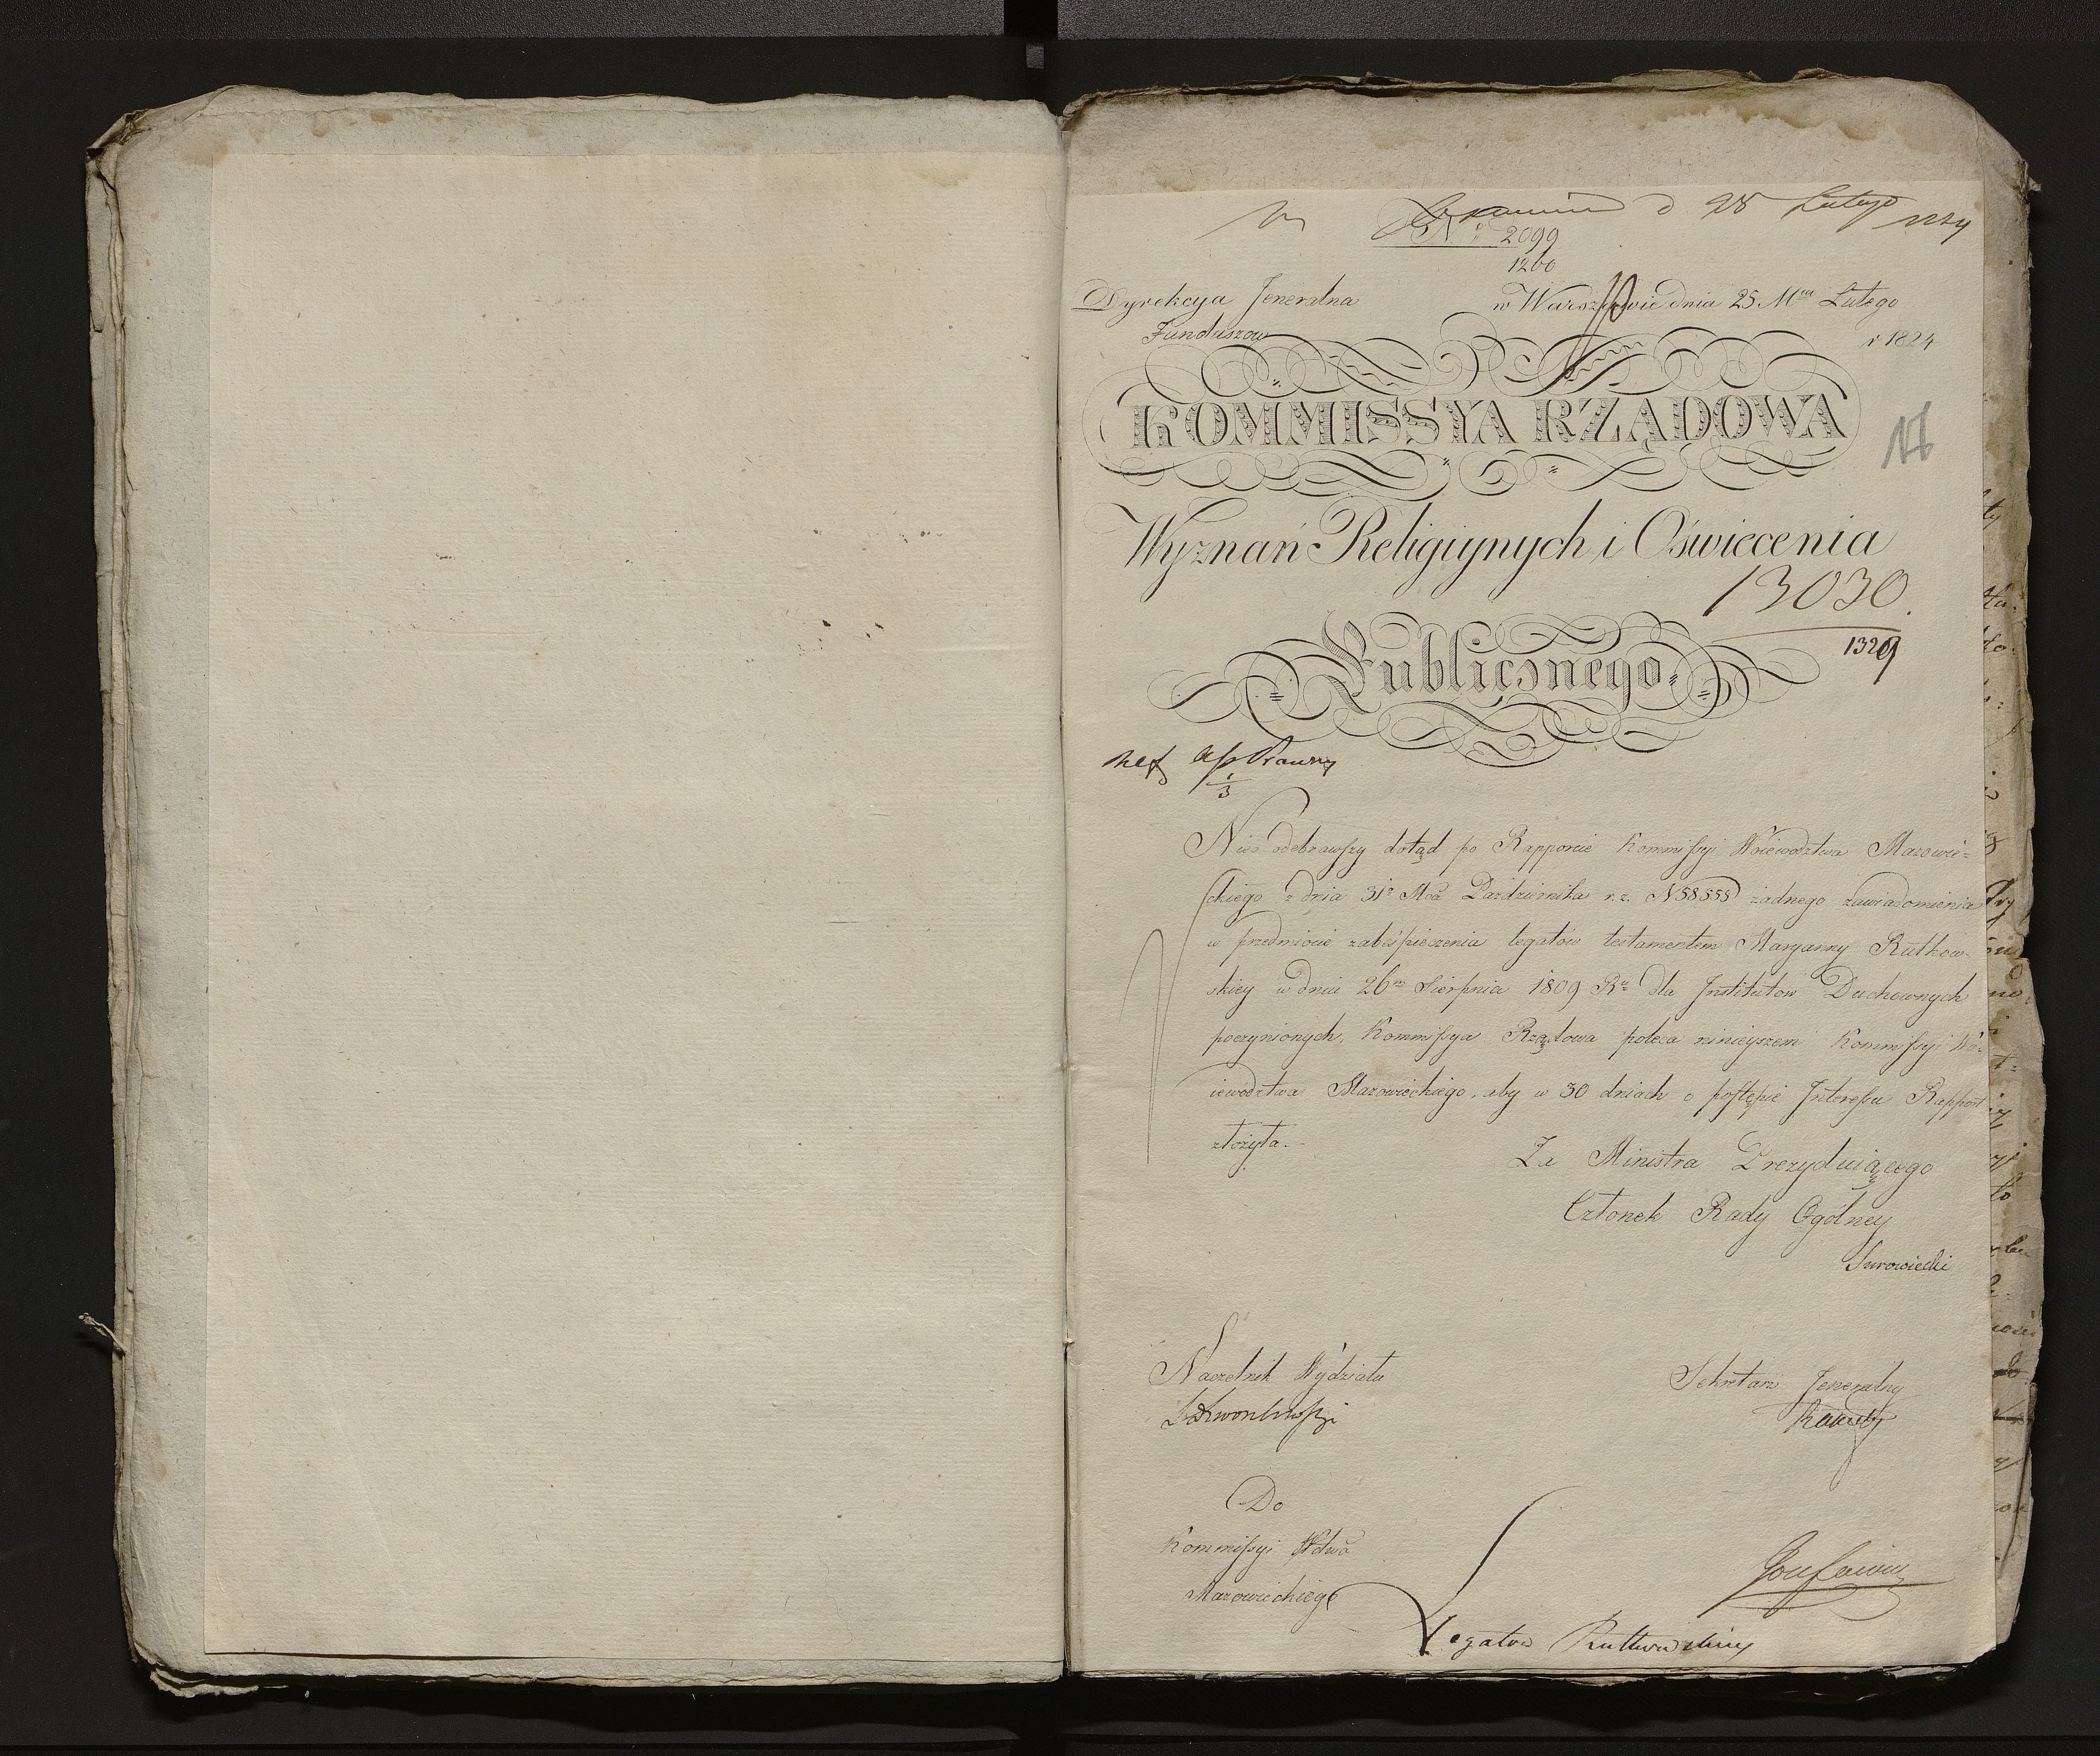 d 28 Lutego 1824
Nº 2099
1260
Dyrekcya Jeneralna
Funduszow
w Warszawie dnia 25 Mca Lutego
r 1824
KOMMISSYA RZĄDOWA
17
Wyznań Religiynych i Oświecenia
13030.
1329
Publicznego.
1/3
Nie odebrawszy dotąd po Rapporcie Kommissyi Woiewodztwa Mazowie=
ckiego z dnia 31º Mca Października r. z. N 58555 żadnego zawiadomienia
w przedmiocie zabespieczenia legatów testamentem Maryanny Rutkow-
skiey w dniu 26m Sierpnia 1809 Ru dla Institutow Duchownych
poczynionych, Kommissya Rządowa poleca ninieyszem Kommissyi Wo-
iewodztwa Mazowieckiego, aby w 30 dniach o postępie Interessu Rapport
złożyła.-
Za Ministra Prezyduiącego
Członek Rady Ogólney
Surowiecki
Naczelnik Wydziału
Sekretarz Jeneralny
Do
Kommissyi Wdtwa
Mazowieckiego
Legatow Rutkowskiey